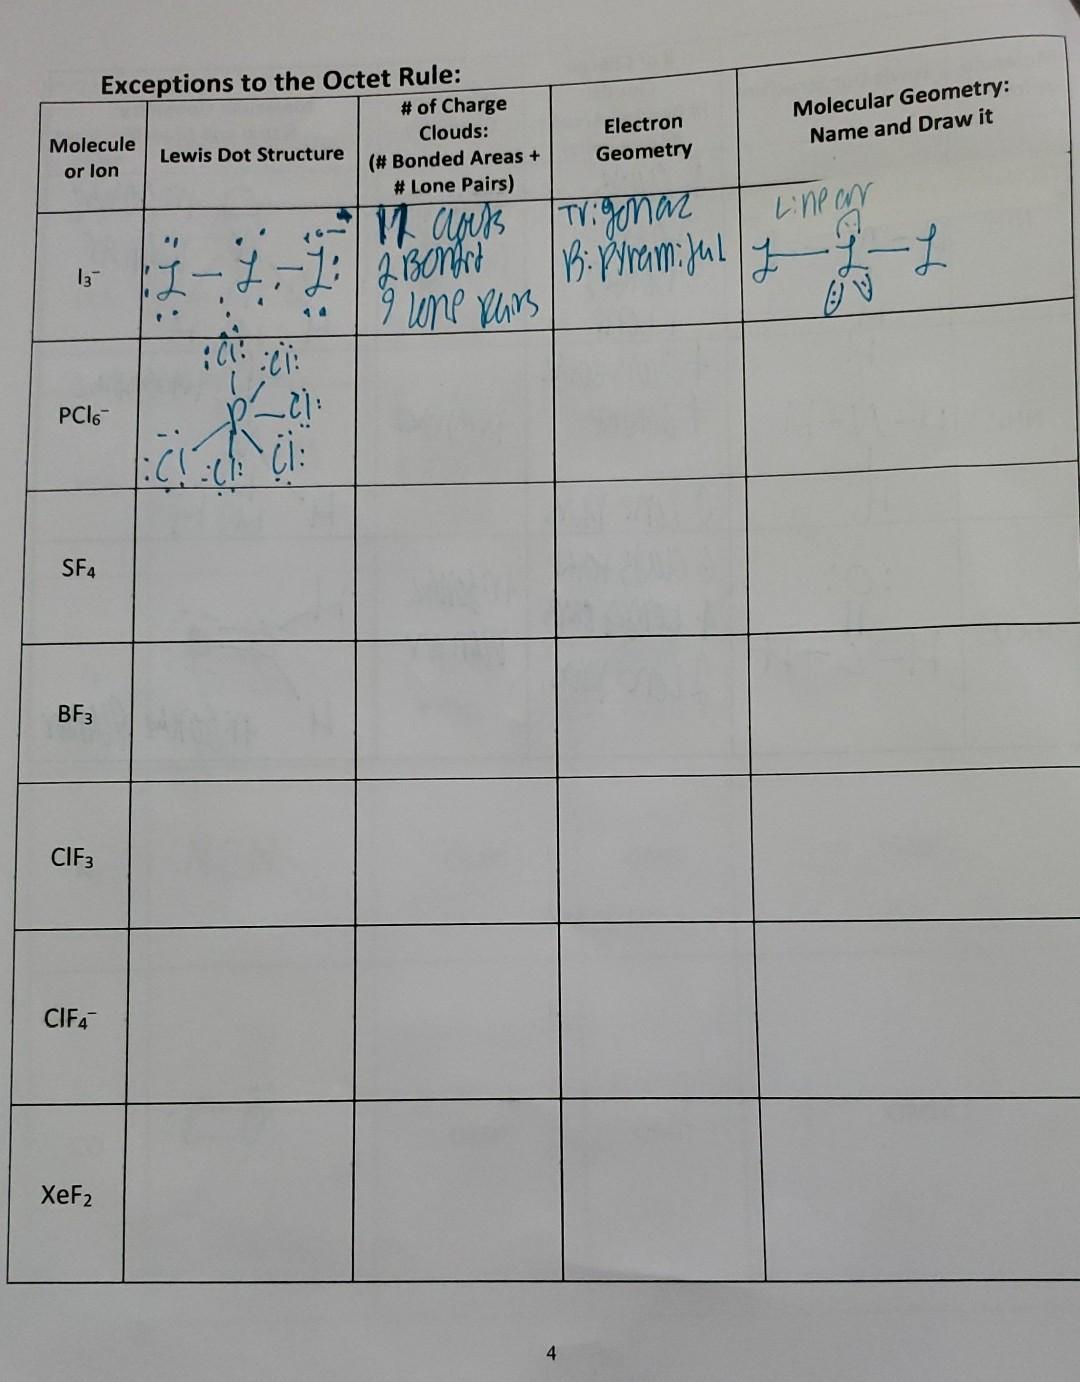 Exceptions to the Octet Rule:
Molecule
or Ion
Lewis Dot Structure
# of Charge
Clouds:
(# Bonded Areas +
# Lone Pairs)
Electron
Geometry
Molecular Geometry:
Name and Draw it
I₃⁻
:I – I – I:
2 Bonded
9 lone pairs
Trigonal
Bipyramidal
Linear
I – I – I
PCl₆⁻
:Cl: :Cl:
P – Cl:
:Cl :Cl: Cl:
SF₄
BF₃
ClF₃
ClF₄⁻
XeF₂
4